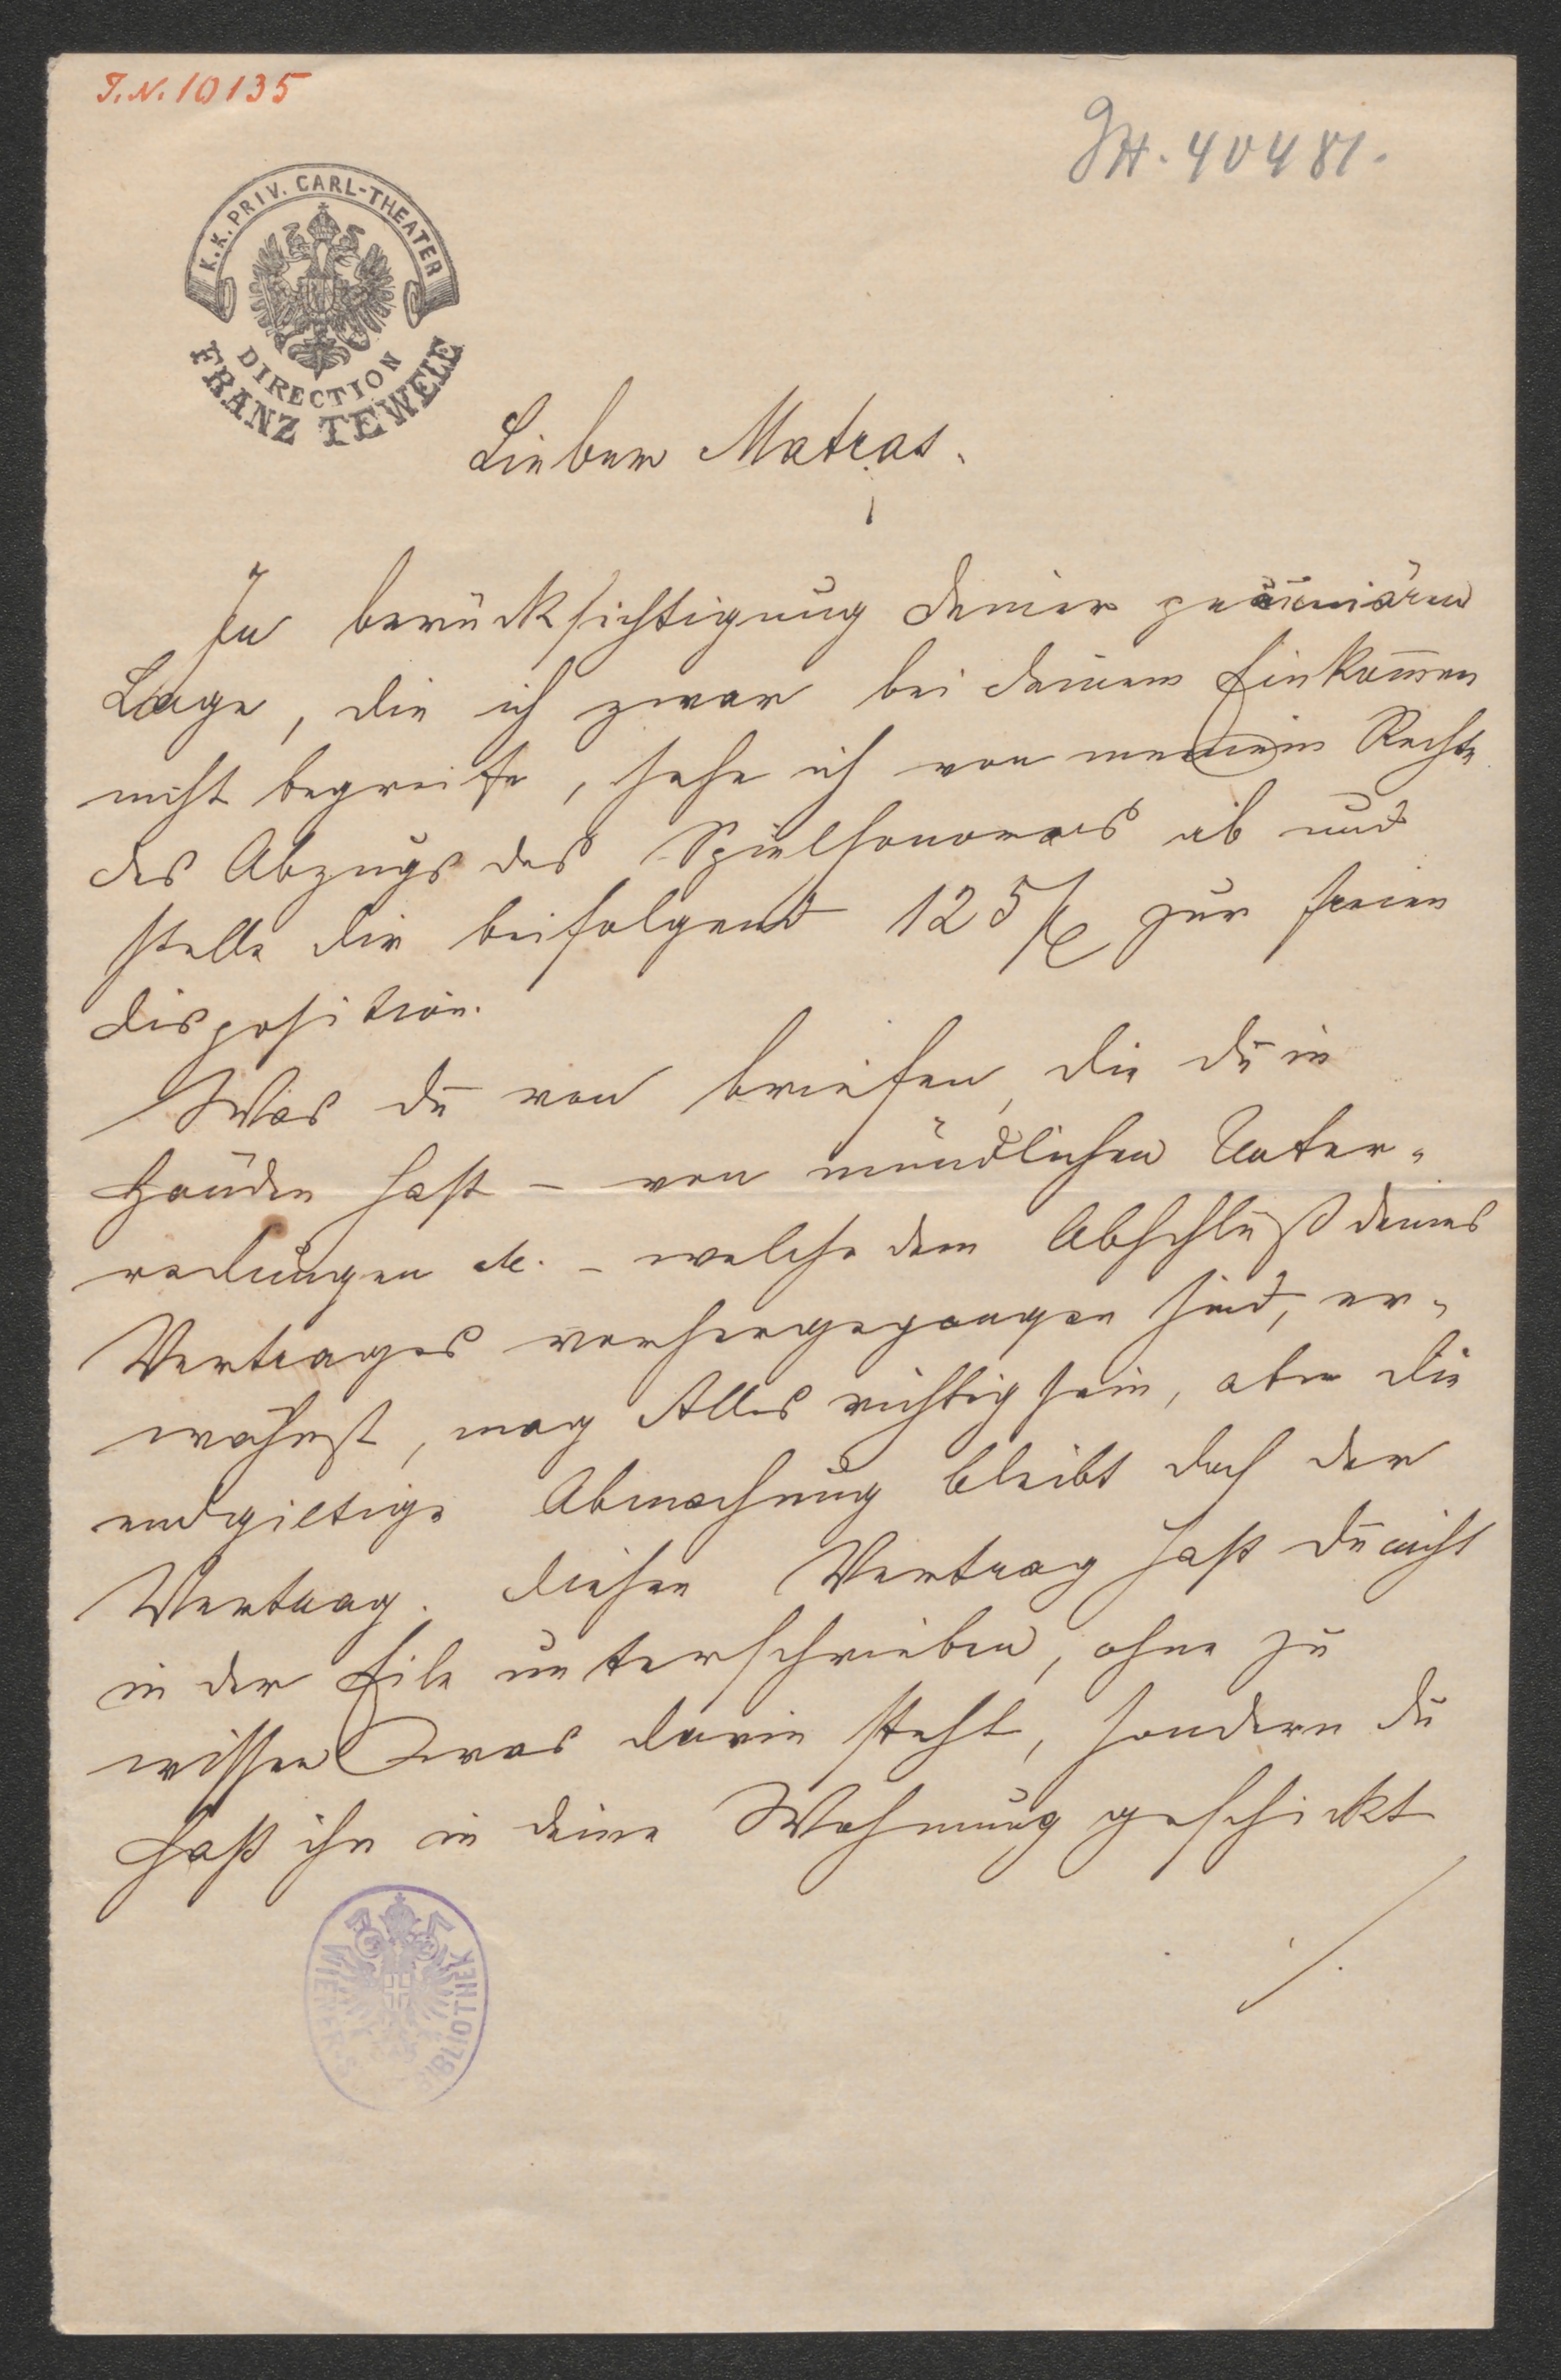 I.N. 10135
JH. 40481.
K.K. PRIV. CARL-THEATER
DIRECTION
FRANZ TEWELE
Lieber Matras.
In berücksichtigung deiner pecuniären
Lage, die ich zwar bei deinem Einkom̄en
nicht begreife, sehe ich von meinem Rechte
des Abzugs des Spielhonorars ab und
stelle dir beifolgend 125 f zur freien
disposition.
Was du von briefen, die du in
Händen hast – von mündlichen Unter-
redungen etc. – welche dem Abschluß deines
Vertrages vorhergegangen sind, er-
wähnst, mag Alles richtig sein, aber die
endgiltige Abmachung bleibt doch der
Vertrag. diesen Vertrag hast du nicht
in der Eile unterschrieben, ohne zu
wissen was darin steht, sondern du
hast ihn in deine Wohnung geschickt
./.
WIENER BIBLIOTHEK